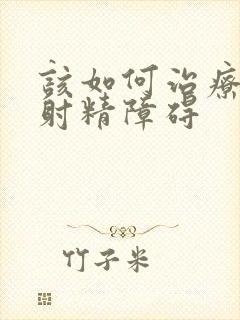 该如何治療
射精障碍
竹子米